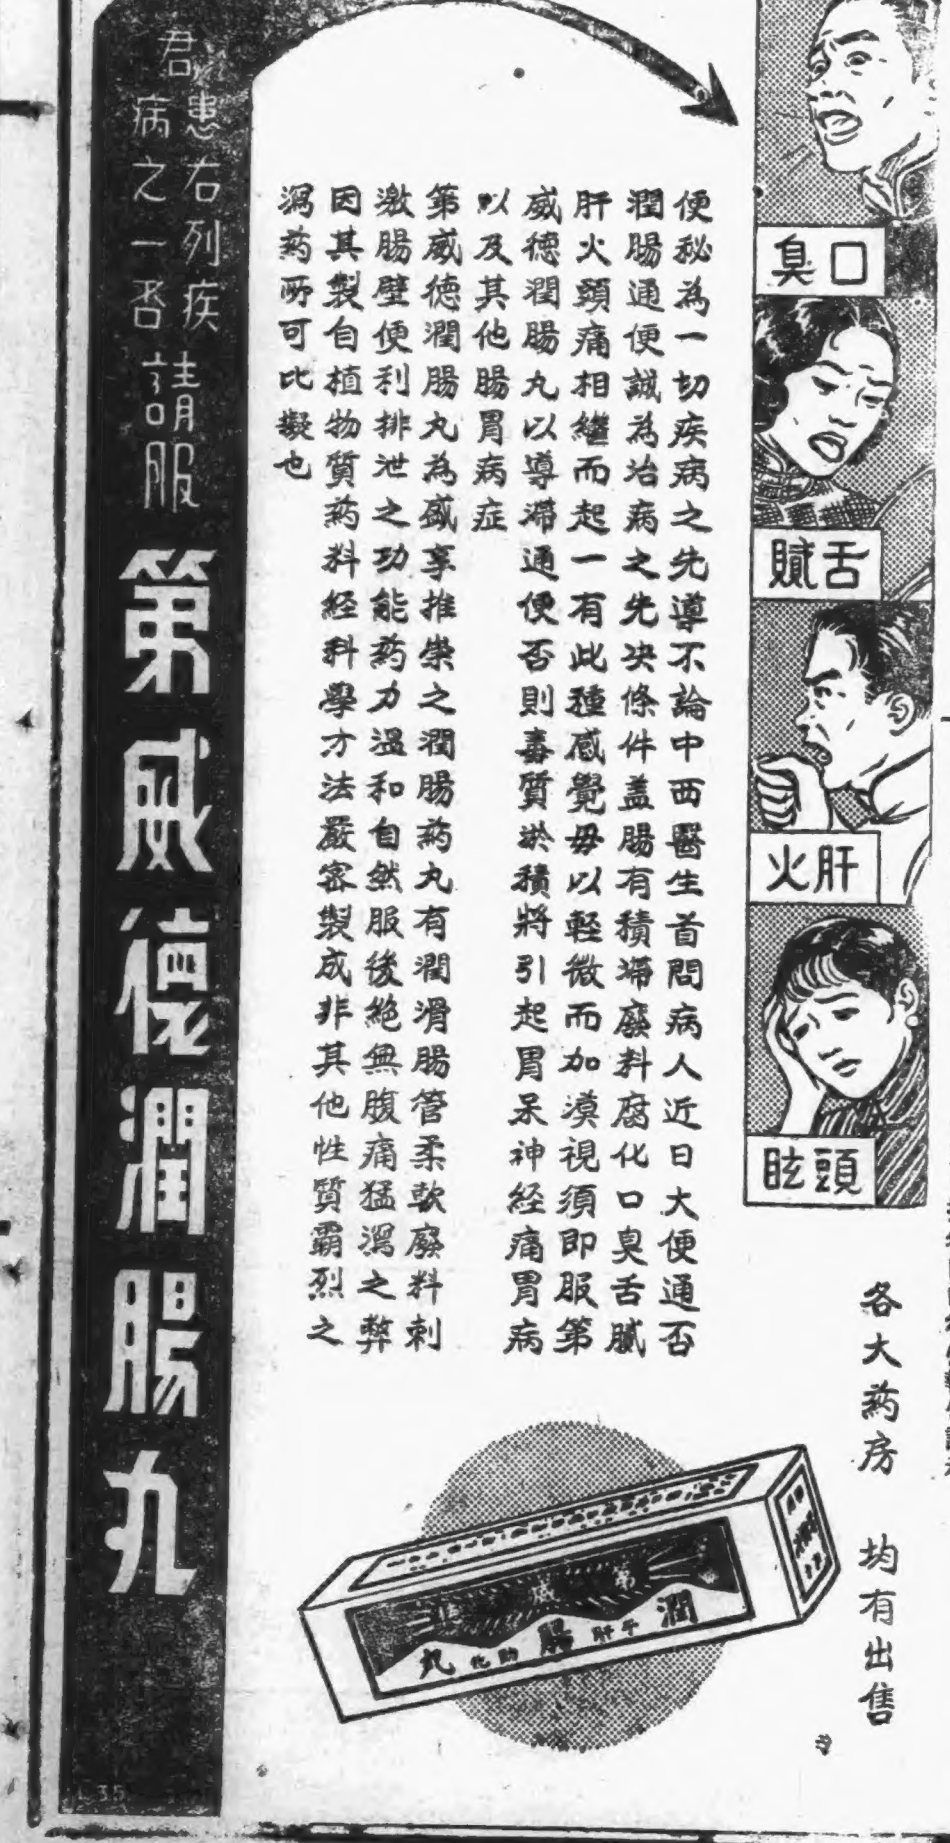 口臭
舌膩
肝火
頭眩
便秘為一切疾病之先導不論中西醫生首問病人近日大便通否
潤腸通便誠為治病之先决條件盖腸有積滯廢料腐化口臭舌膩
肝火頭痛相繼而起一有此種感覺毋以輕微而加漠視須即服第
威德潤腸丸以導滯通便否則毒質淤積將引起胃呆神経痛胃病
以及其他腸胃病症
第威德潤腸丸為盛享推崇之潤腸药丸有潤滑腸管柔軟廢料刺
激腸壁便利排泄之功能药力温和自然服後絶無腹痛猛瀉之弊
因其製自植物質药料経科學方法嚴密製成非其他性質霸烈之
瀉药所可比擬也
君患右列疾
病之一否
請服
第威德潤腸丸
各大药房 均有出售
潤
平肝
腸
助化
丸
35